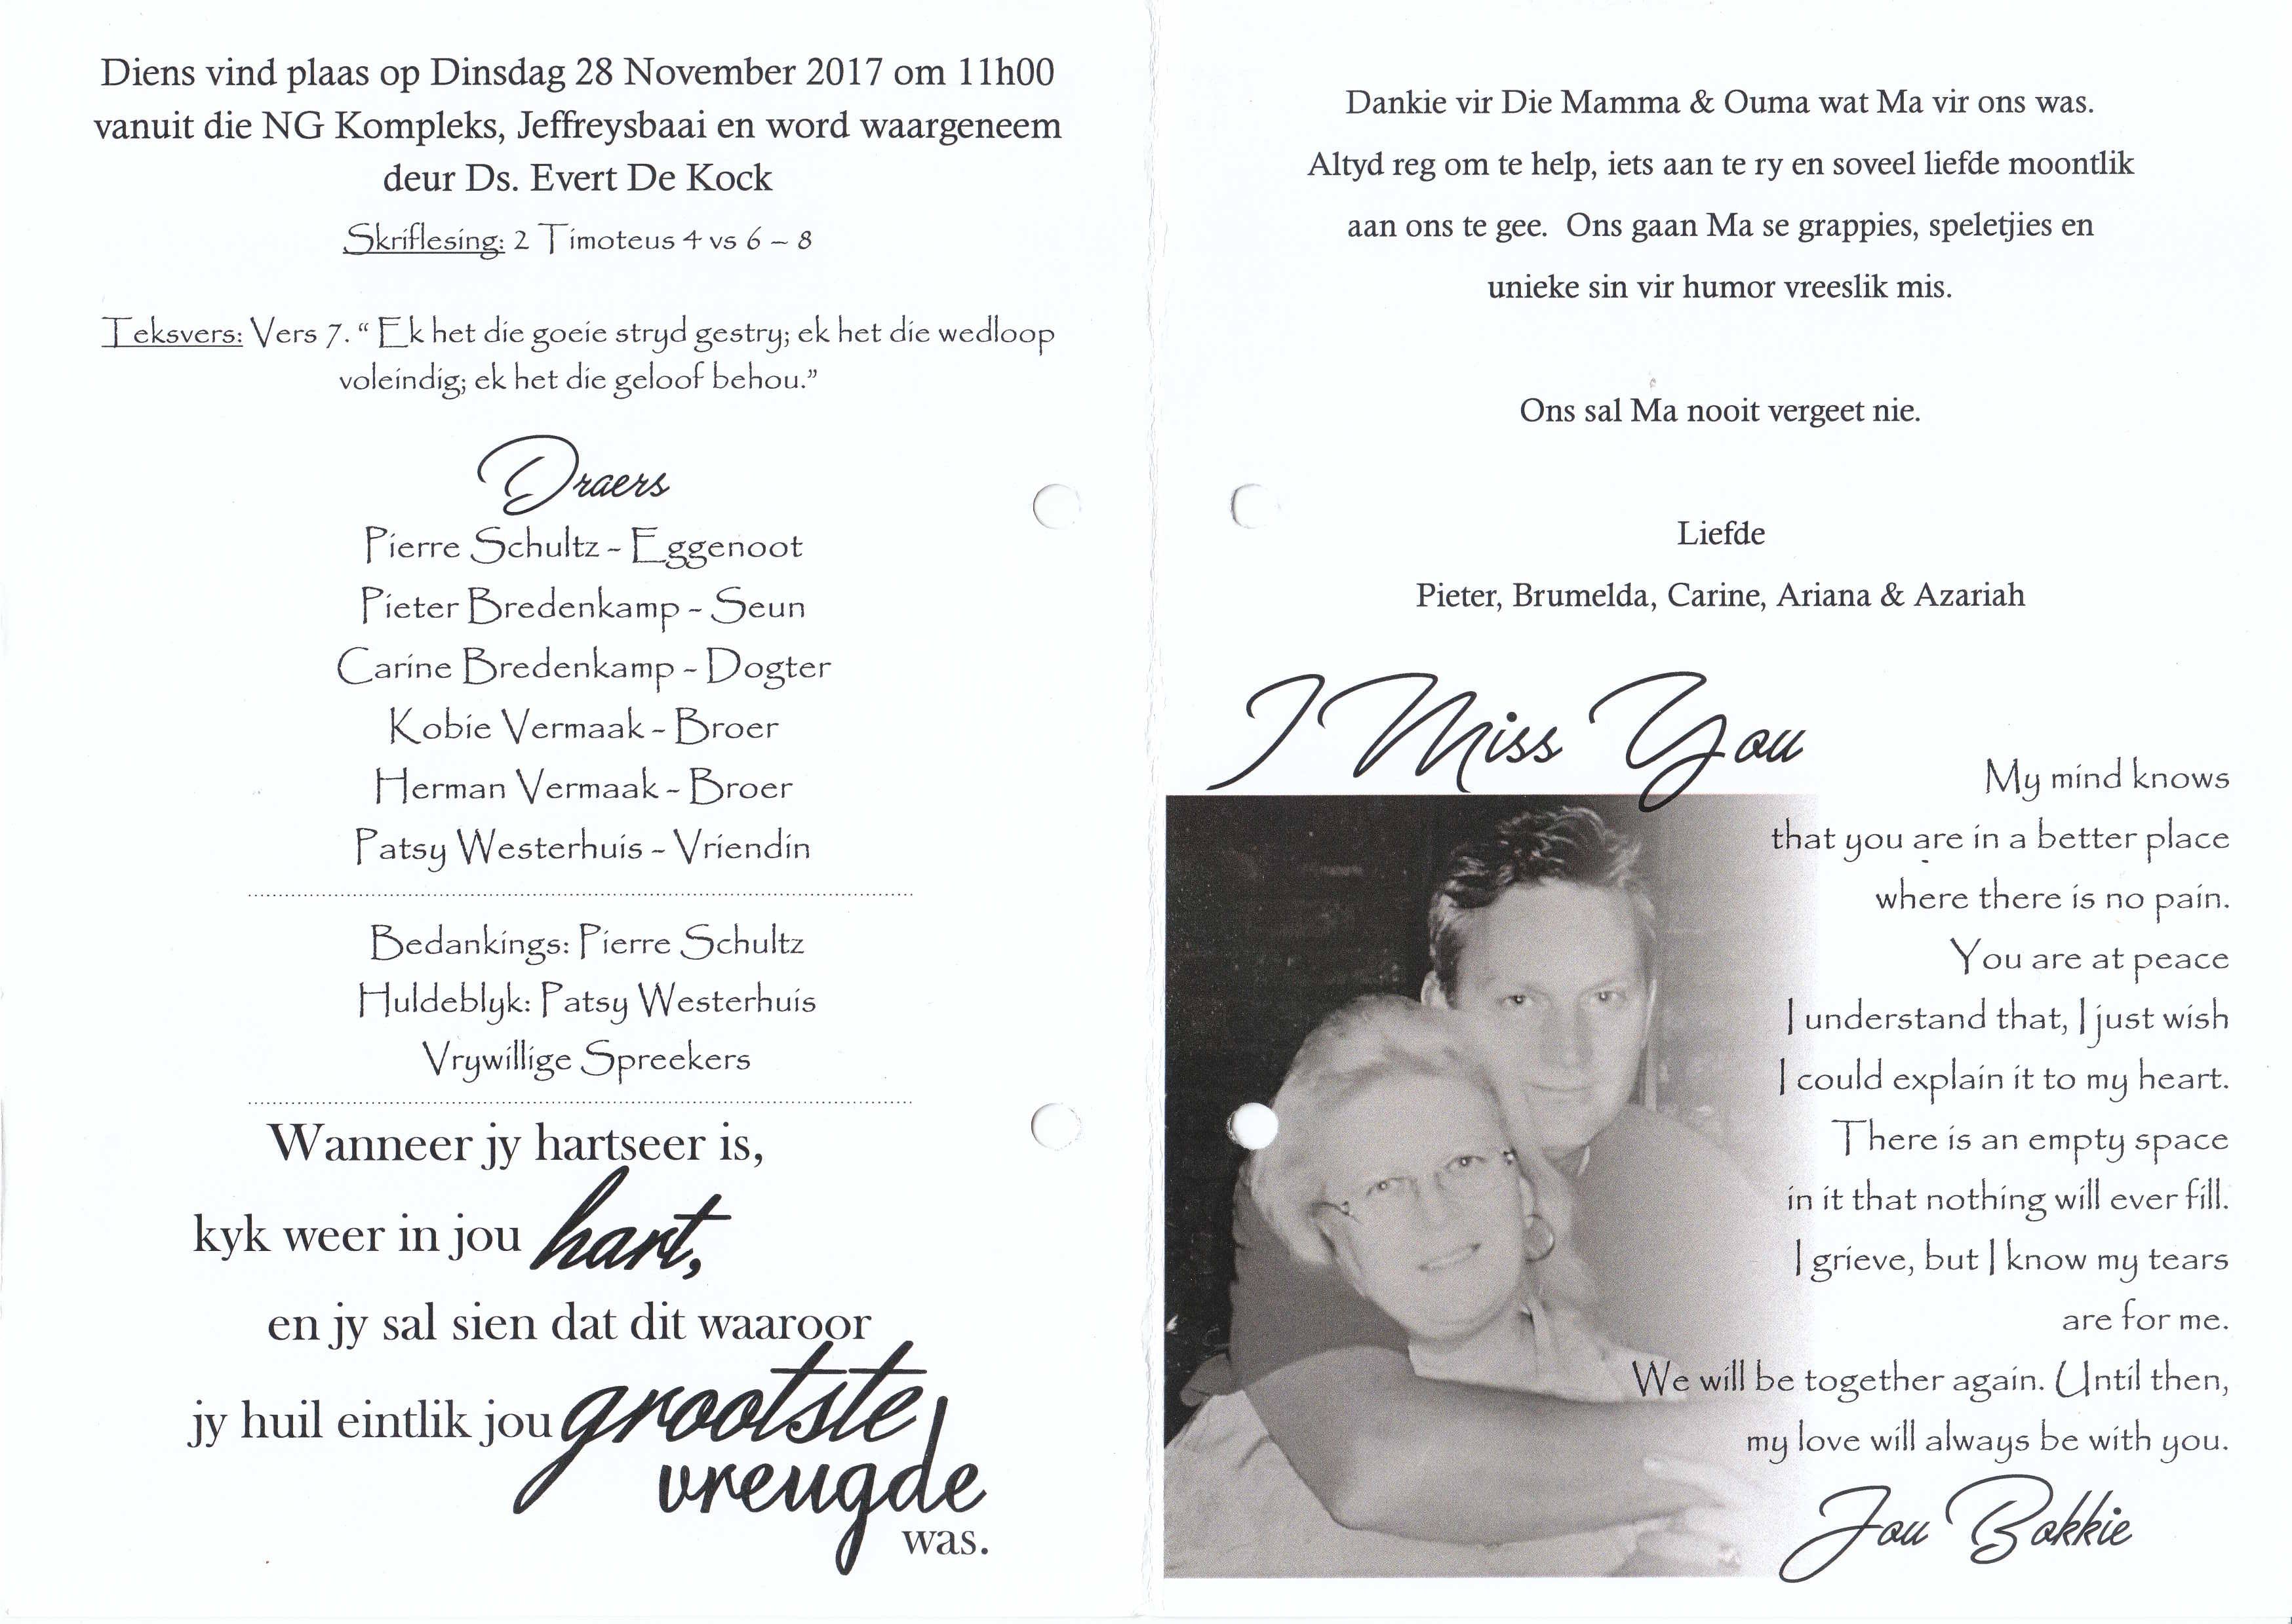 Diens vind plaas op Dinsdag 28 November 2017 om 11h00
vanuit die NG Kompleks, Jeffreysbaai en word waargeneem
deur Ds. Evert De Kock
Skriflesing: 2 Timoteus 4 vs 6 – 8
Teksvers: Vers 7. “ Ek het die goeie stryd gestry; ek het die wedloop
voleindig; ek het die geloof behou.”
Draers
Pierre Schultz - Eggenoot
Pieter Bredenkamp - Seun
Carine Bredenkamp - Dogter
Kobie Vermaak - Broer
Herman Vermaak - Broer
Patsy Westerhuis - Vriendin
Bedankings: Pierre Schultz
Huldeblyk: Patsy Westerhuis
Vrywillige Spreekers
Wanneer jy hartseer is,
kyk weer in jou hart,
en jy sal sien dat dit waaroor
jy huil eintlik jou grootste
vreugde
was.
Dankie vir Die Mamma & Ouma wat Ma vir ons was.
Altyd reg om te help, iets aan te ry en soveel liefde moontlik
aan ons te gee.  Ons gaan Ma se grappies, speletjies en
unieke sin vir humor vreeslik mis.
Ons sal Ma nooit vergeet nie.
Liefde
Pieter, Brumelda, Carine, Ariana & Azariah
I Miss You
My mind knows
that you are in a better place
where there is no pain.
You are at peace
I understand that, I just wish
I could explain it to my heart.
There is an empty space
in it that nothing will ever fill.
I grieve, but I know my tears
are for me.
We will be together again. Until then,
my love will always be with you.
Jou Bokkie